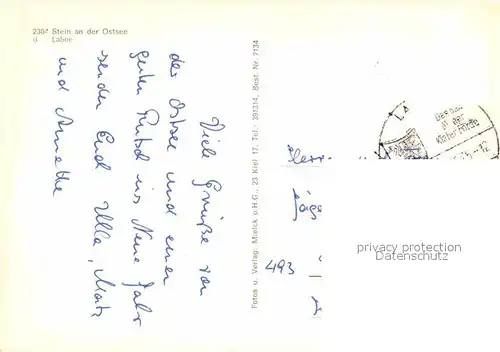 2304 Stein an der Ostsee
ü Laboe
Viele Grüße von
der Ostsee und einen
guten Rutsch ins Neue Jahr
senden Euch Ulla, Mats
und Annette
Fotos u. Verlag: Mielck o.H.G., 23 Kiel 17, Tel.: 391314, Best. Nr. 7134
LA
an der
Kieler Förde
-12
Herr
Jäge
493
privacy protection
Datenschutz